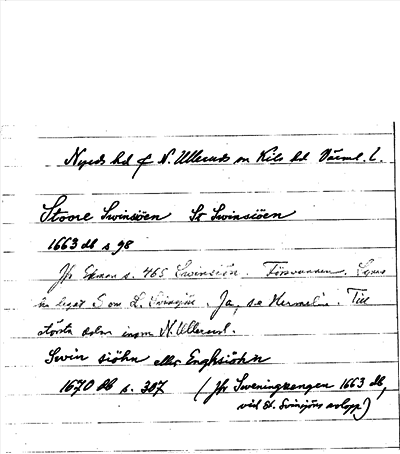 Nyeds hd & N. Ulleruds sn Kils hd Värml. l.
Stoore Swinsiöen St Swinsiöen
1663 db s 98
Jfr Ekman s. 465 Swinsiön. Försvunnen. Synes
ha legat S om L. Svinsjön. Ja, se Hermelin. Till
största delen inom N. Ullerud.
Swin siöhn eller Enghsiöhn
1670 db s. 307 (Jfr Sweningzengen 1663 db,
vid St. Svinsjöns avlopp)